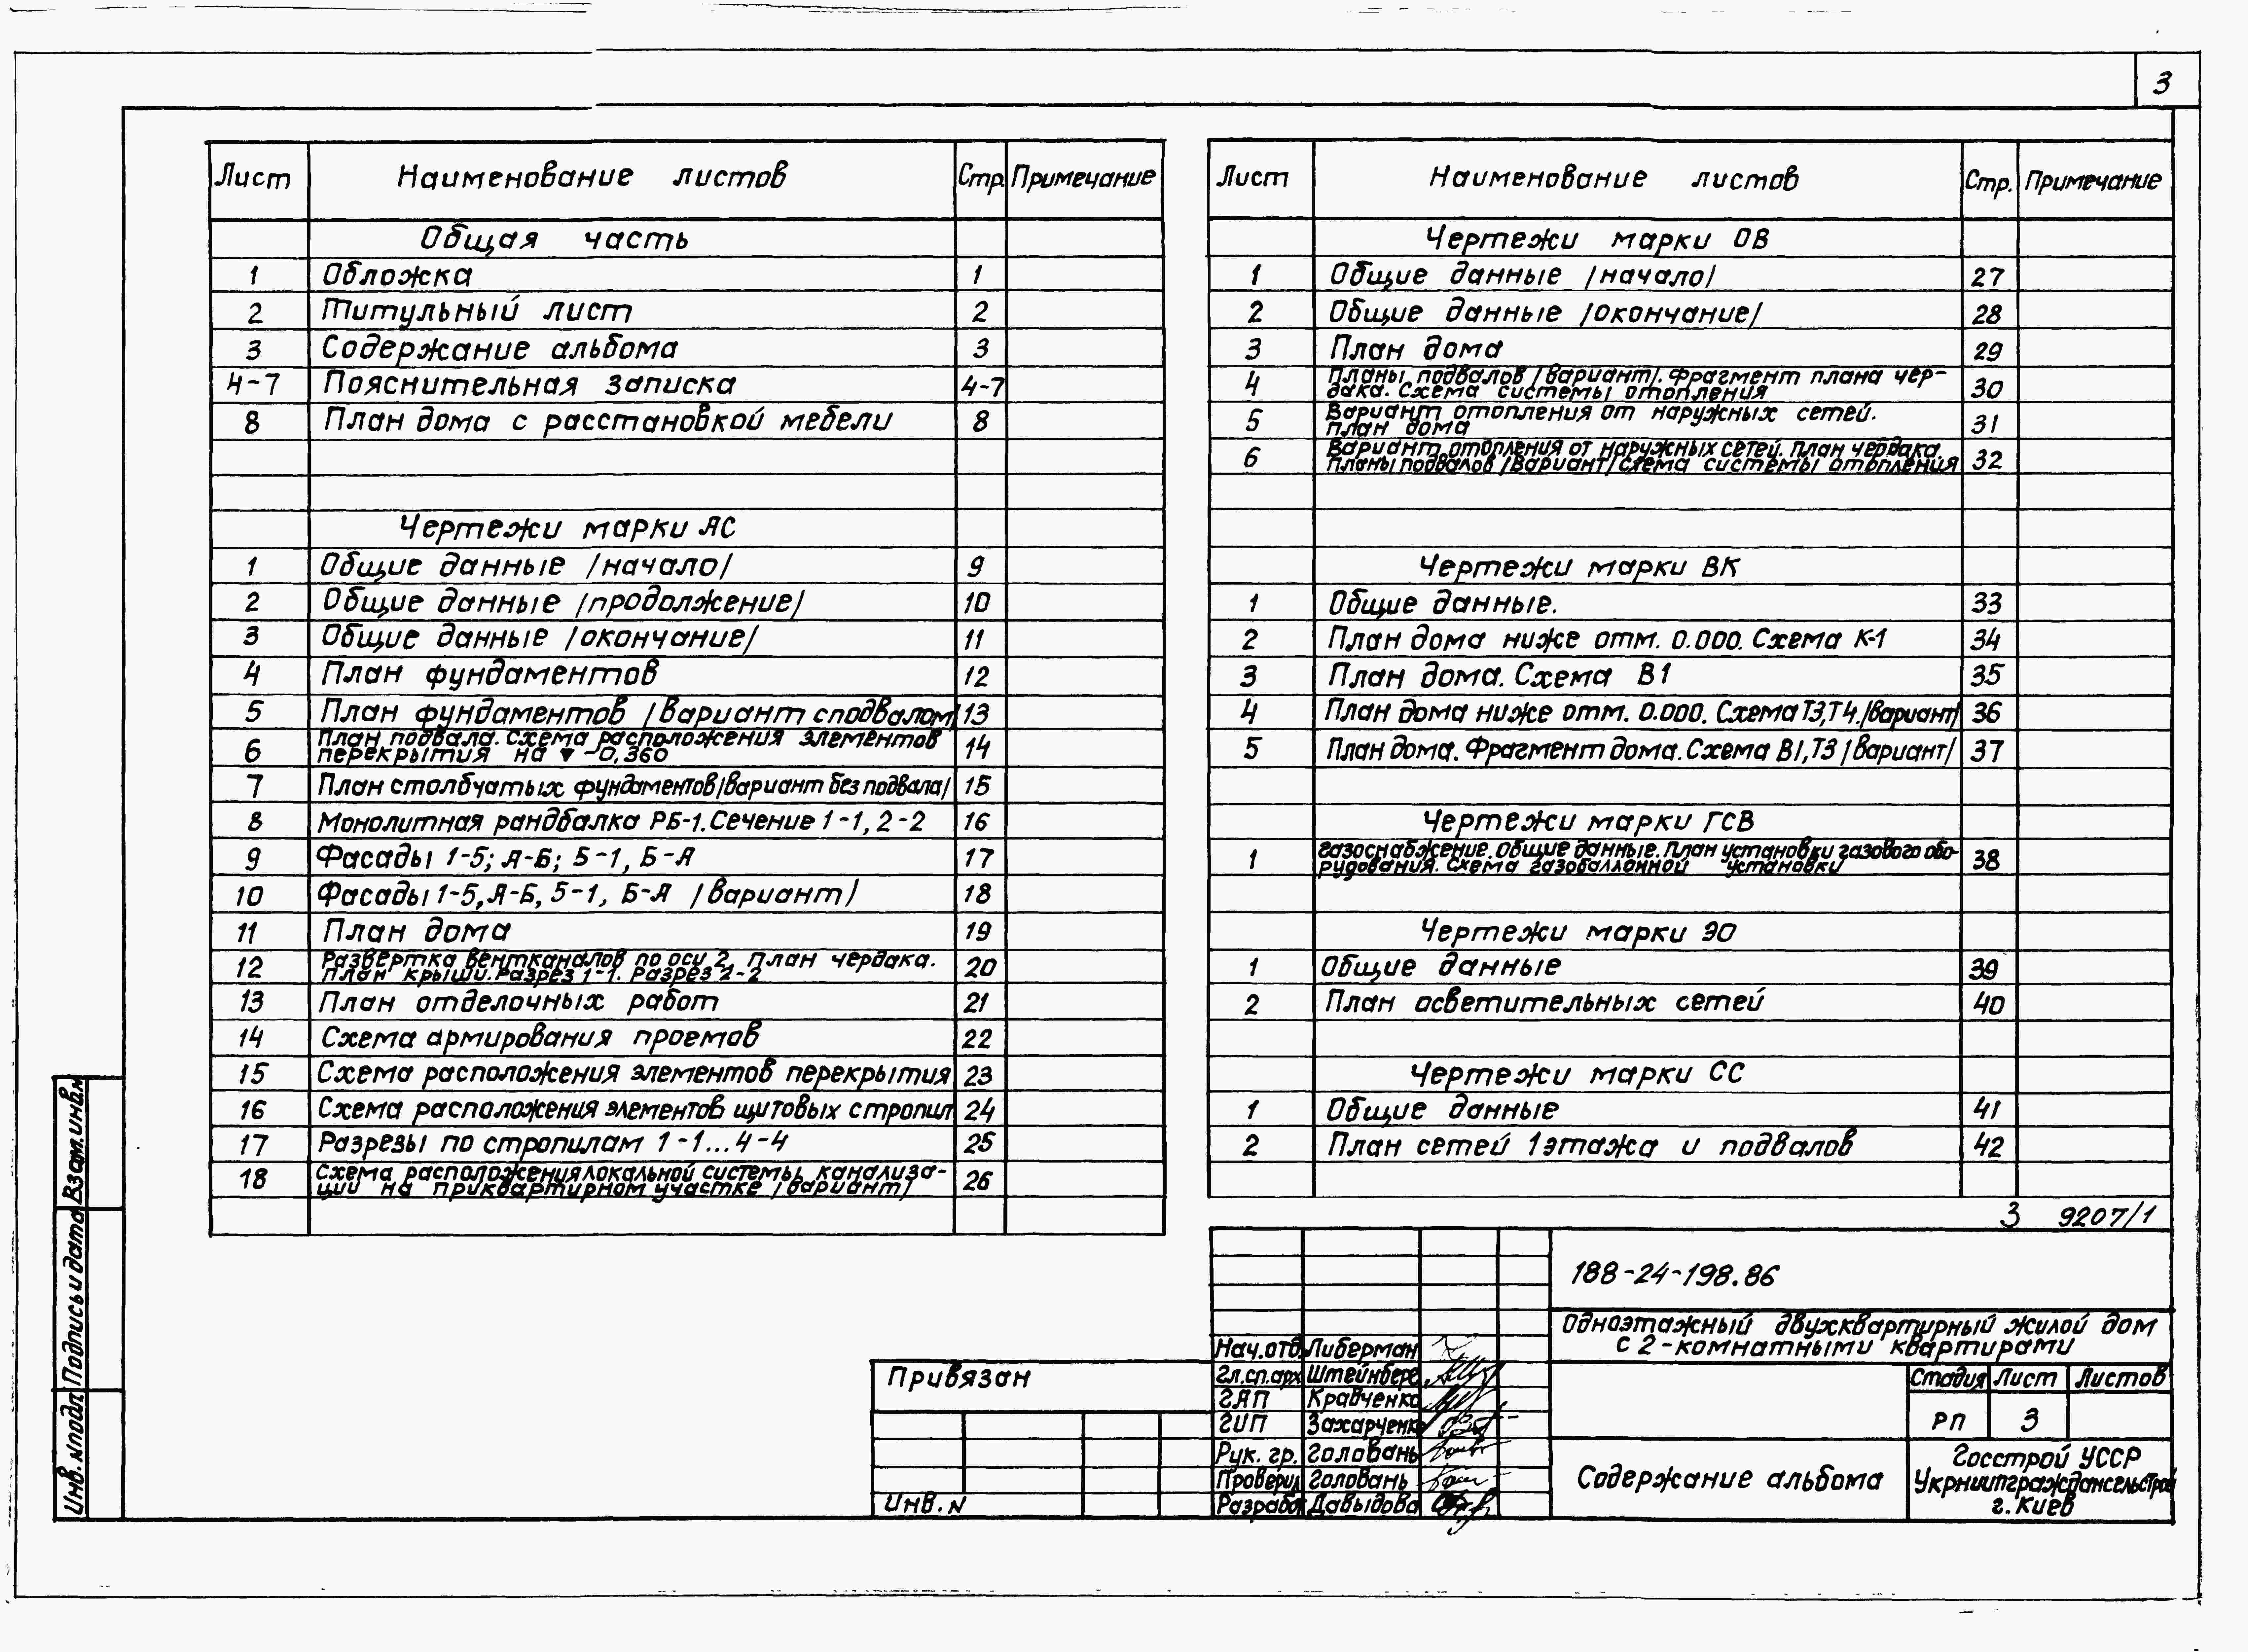 3
Лист Наименование листов Стр. Примечание
Общая часть
1 Обложка 1
2 Титульный лист 2
3 Содержание альбома 3
4-7 Пояснительная записка 4-7
8 План дома с расстановкой мебели 8
Чертежи марки АС
1 Общие данные /начало/ 9
2 Общие данные /продолжение/ 10
3 Общие данные /окончание/ 11
4 План фундаментов 12
5 План фундаментов /вариант с подвалом/ 13
6 План подвала. Схема расположения элементов
перекрытия на ▼ -0,360 14
7 План столбчатых фундаментов /вариант без подвала/ 15
8 Монолитная рандбалка РБ-1. Сечение 1-1, 2-2 16
9 Фасады 1-5; А-Б; 5-1, Б-А 17
10 Фасады 1-5, А-Б, 5-1, Б-А /вариант/ 18
11 План дома 19
12 Развертка вентканалов по оси 2, план чердака.
План крыши. Разрез 1-1. Разрез 2-2 20
13 План отделочных работ 21
14 Схема армирования проемов 22
15 Схема расположения элементов перекрытия 23
16 Схема расположения элементов щитовых стропил 24
17 Разрезы по стропилам 1-1...4-4 25
18 Схема расположения локальной системы канализа-
ции на приквартирном участке /вариант/ 26
Лист Наименование листов Стр. Примечание
Чертежи марки ОВ
1 Общие данные /начало/ 27
2 Общие данные /окончание/ 28
3 План дома 29
4 Планы подвалов /вариант/. Фрагмент плана чер-
дака. Схема системы отопления 30
5 Вариант отопления от наружных сетей.
План дома 31
6 Вариант отопления от наружных сетей. План чердака.
Планы подвалов /вариант/ схема системы отопления 32
Чертежи марки ВК
1 Общие данные. 33
2 План дома ниже отм. 0.000. Схема К-1 34
3 План дома. Схема В1 35
4 План дома ниже отм. 0.000. Схема Т3, Т4. /вариант/ 36
5 План дома. Фрагмент дома. Схема В1, Т3 /вариант/ 37
Чертежи марки ГСВ
1 Газоснабжение. Общие данные. План установки газового обо-
рудования. Схема газобаллонной установки 38
Чертежи марки ЭО
1 Общие данные 39
2 План осветительных сетей 40
Чертежи марки СС
1 Общие данные 41
2 План сетей 1 этажа и подвалов 42
3 9207/1
188-24-198.86
Одноэтажный двухквартирный жилой дом
с 2-комнатными квартирами
Нач.отд. Либерман
Гл.сп.арх Штейнберг
ГАП Кравченко
ГИП Захарченко
Рук. гр. Головань
Проверил Головань
Разработ. Давыдова
Стадия Лист Листов
РП 3
Содержание альбома
Госстрой УССР
УкрНИИПграждансельстрой
г. Киев
Привязан
Инв. N
Взам.инв.N
Подпись и дата
Инв. N подл.